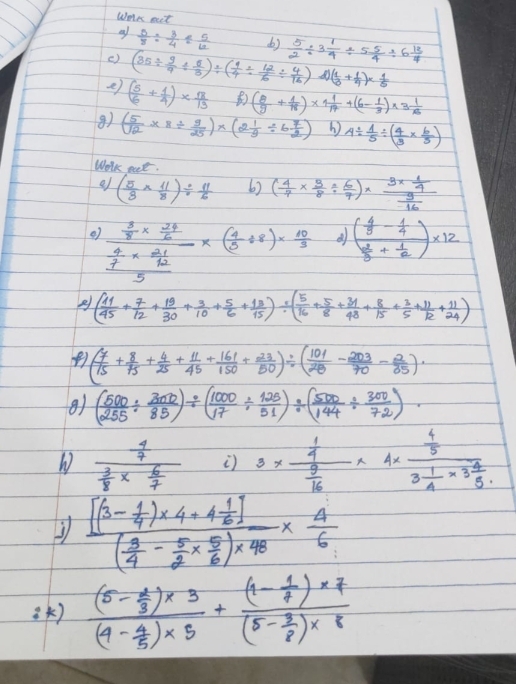 Work out
a) 5/8 ÷ 3/4 ÷ 5/12 b) 5/2 ÷ 3 1/4 ÷ 5 5/4 ÷ 6
c) (35 ÷ 9/4 ÷ 5/3) ÷ (9/4 ÷ 12/6 ÷ 4/16) d) (1/3 + 1/4) × 1/5
e) (5/6 + 1/4) × 12/13 f) × 1 + (6 - 1/3) × 3 1/6
g) (5/12 × 8 ÷ 9/25) × (2 1/3 ÷ 6 7/2) h) 4 ÷ 4/5 ÷ (4/3 × 6/5)
Work out.
a) (5/3 × 11/8) ÷ 11/6 b) (4/7 × 9/8 ÷ 6/7) × (3 × 1/4)/(9/16)
c) (3/8 × 24/6)/((4/7 × 21/12)/5) × (4/5 ÷ 8) × 10/3 d) ((4/3 - 1/4)/(2/3 + 1/2)) × 12
e) (11/45 + 7/12 + 19/30 + 3/10 + 5/6 + 13/15) ÷ (5/16 + 5/8 + 31/48 + 8/15 + 3/5 + 11/12 + 11/24)
f) (7/15 + 8/75 + 4/25 + 11/45 + 161/150 + 23/50) ÷ (101/28 - 203/70 - 2/35).
g) (500/255 ÷ 300/85) ÷ (1000/17 ÷ 125/51) ÷ (500/144 ÷ 300/72).
h) (4/7)/(3/8 × 6/7) i) 3 × (1/4)/(9/16) × 4 × (4/5)/(3 1/4 × 3 4/5).
j) [(3 - 1/4) × 4 + 4 1/6]/((3/4 - 5/2 × 5/6) × 48) × 4/6
k) ((5 - 2/3) × 3)/((4 - 4/5) × 5) + ((1 - 1/7) × 7)/((5 - 3/8) × 8)